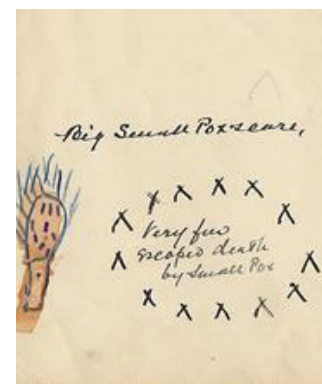 Big Small Pox scare,
Very few
Escaped death
by Small Pox